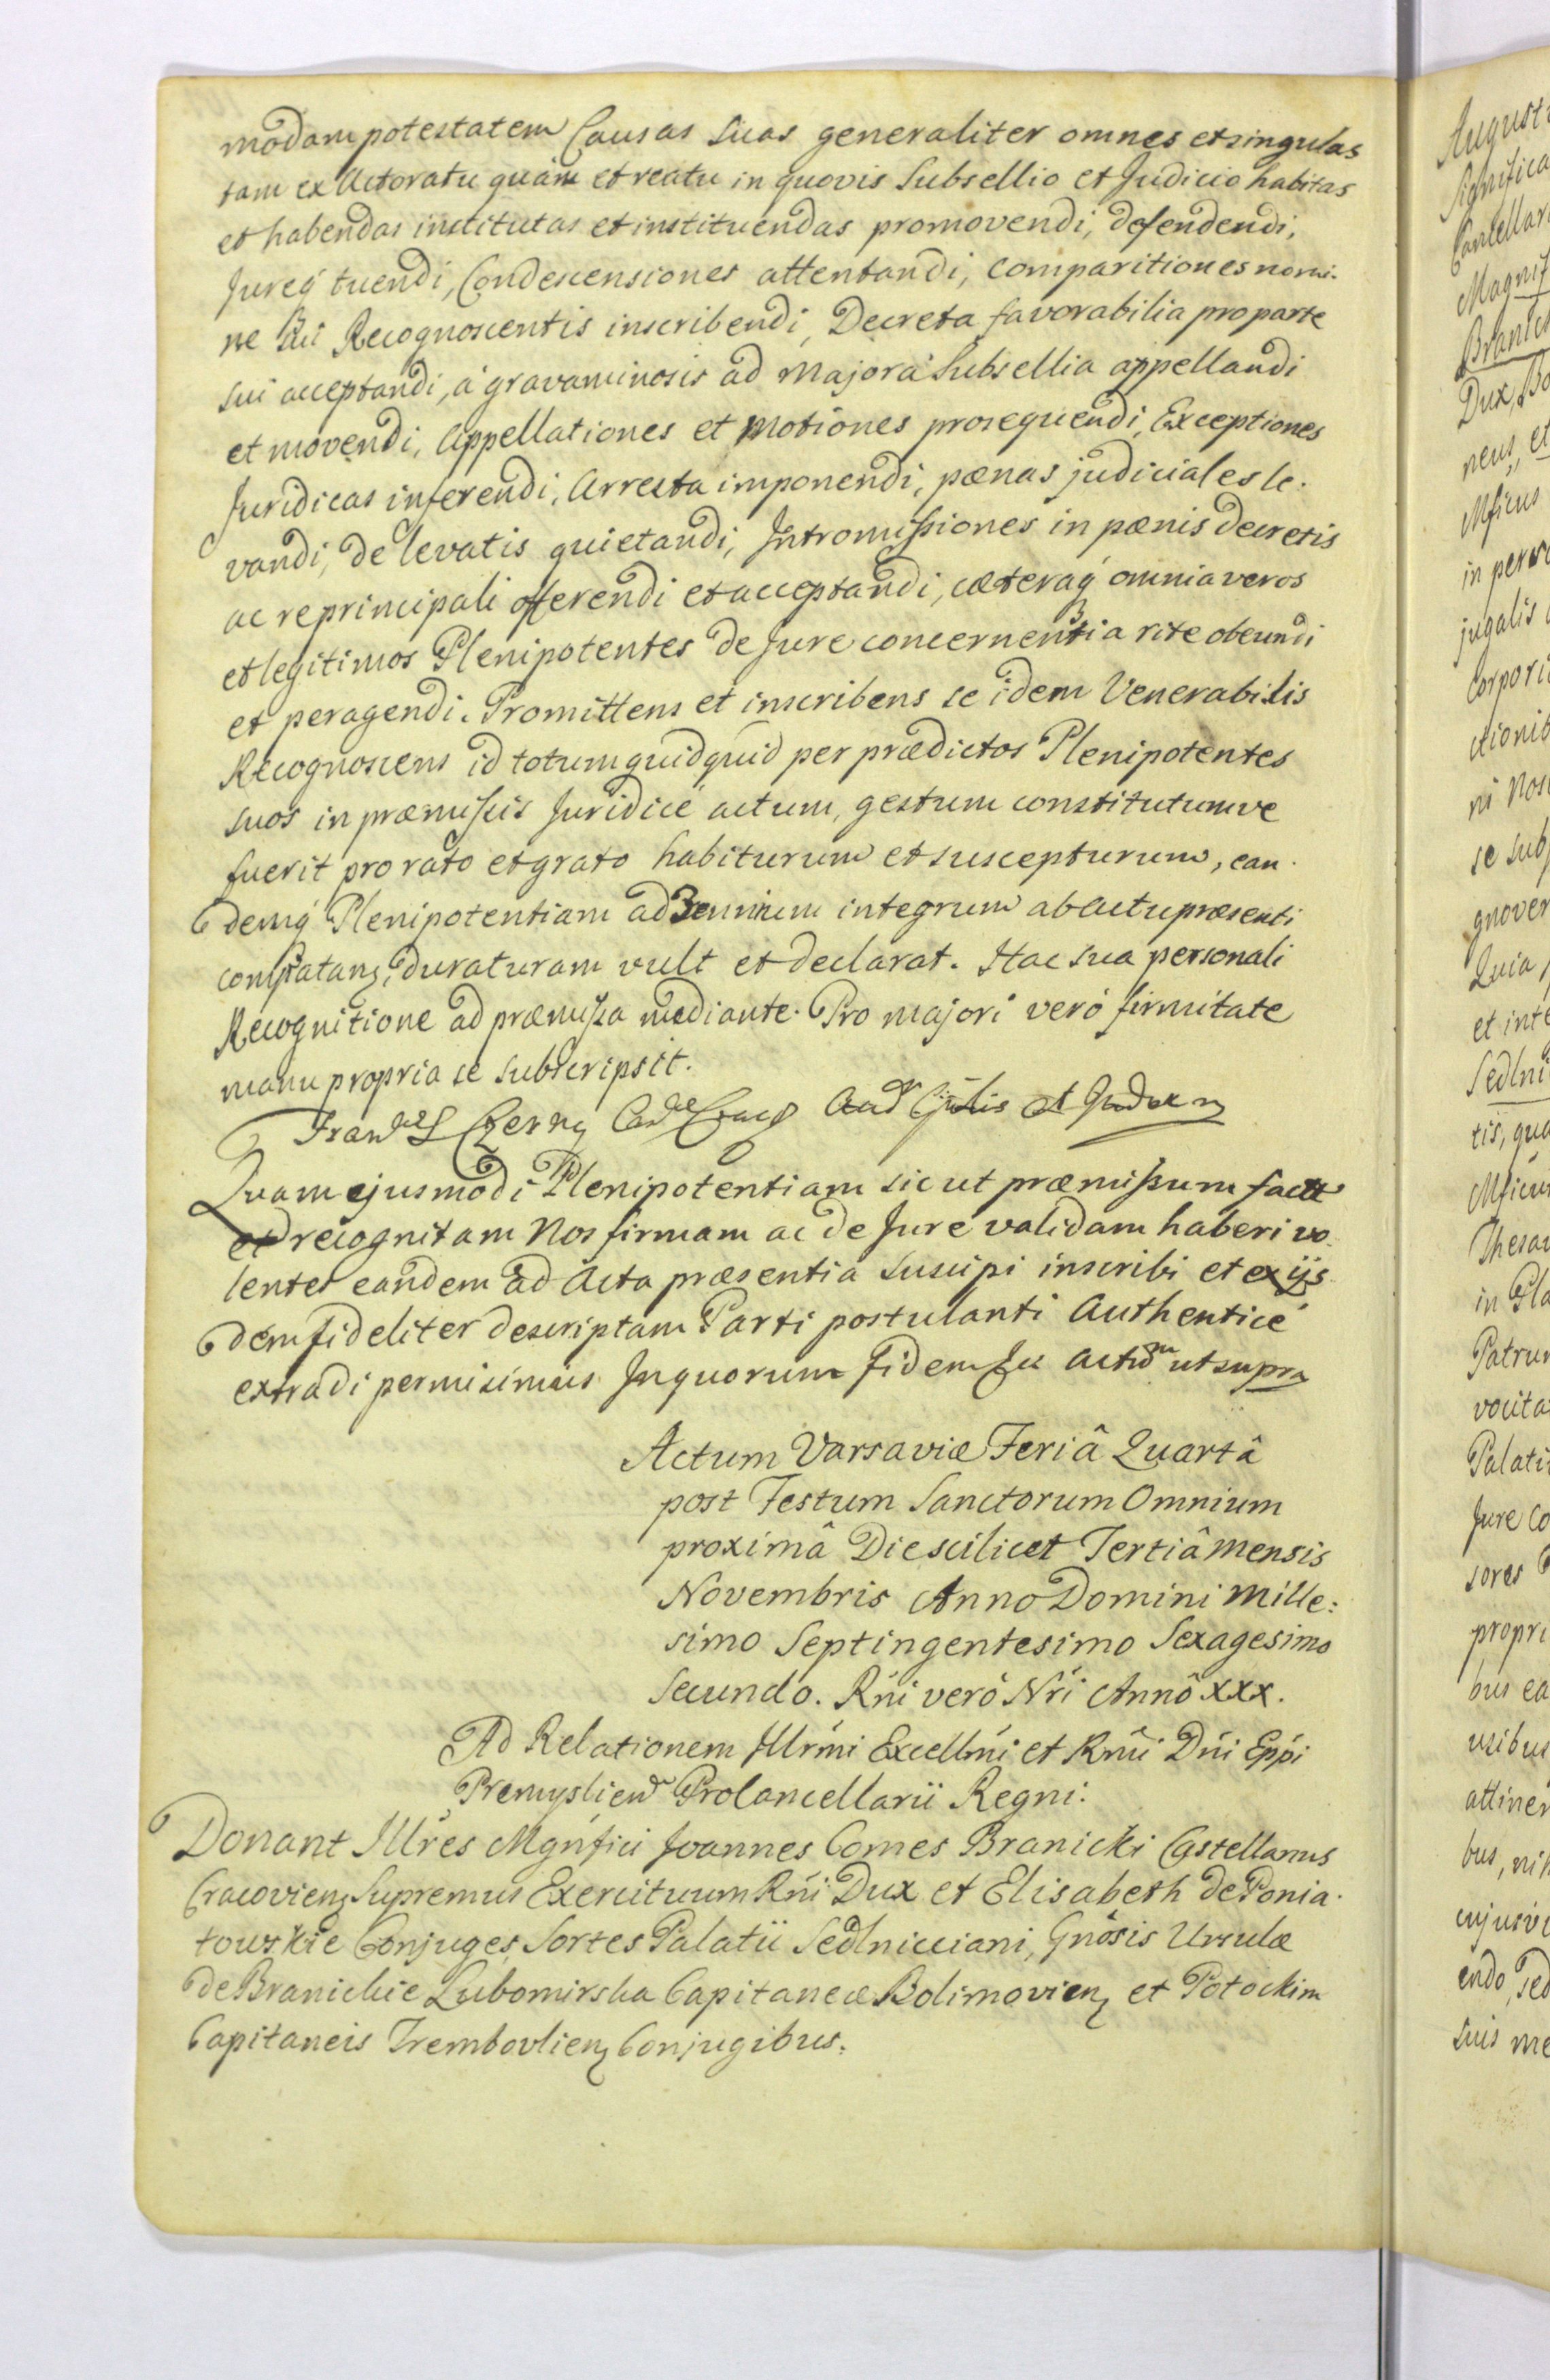 modam potestatem Causas suas generaliter omnes et singulas
tam ex Actoratu quám et reatu in quovis Subsellio et Judicio habitas
et habendas institutas et instituendas promovendi, defendendi,
Jureq́ tuendi, Condescensiones attentandi, comparitiones nomi-
ne sui Recognoscentis inscribendi, Decreta favorabilia pro parte
sui acceptandi, á gravaminosis ad Majora Subsellia appellandi
et movendi, Appellationes et Motiones prosequendi, Exceptiones
Juridicas inferendi, Arresta imponendi, pænas judiciales le-
vandi, de levatis quietandi, Intromissiones in pænis decretis
ac re principali offerendi et acceptandi, cæteraq́ omnia veros
et legitimos Plenipotentes de Jure concernentia rite obeundi
et peragendi. Promittens et inscribens se idem Venerabilis
Recognoscens id totum quidquid per prædictos Plenipotentes
suos in præmissis Juridicé actum, gestum constitutumve
fuerit pro rato et grato habiturum et suscepturum, ean-
demq́ Plenipotentiam ad 3ennium integrum ab Actu præsenti
computanɀ, duraturam vult et declarat. Hac sua personali
Recognitione ad præmissa mediante. Pro majori veró firmitate
manu propria se subscripsit.
Czerny
Quam ejusmodi Plenipotentiam sic ut præmissum
et recognitam Nos firmam ac de Jure validam haberi vo-
lentes eandem ad Acta præsentia suscipi inscribi et ex ijs-
dem fideliter descriptam Parti postulanti Authenticé
extradi permisimus. In quorum fidem Actum ut supra
Actum Varsaviæ Feriâ Quartâ
post Festum Sanctorum Omnium
proximâ Die scilicet Tertiâ Mensis
Novembris Anno Domini Mille:
simo Septingentesimo Sexagesimo
Secundo. Rńi veró Nrí Annô XXX.
Ad Relationem Illrmi Excellmi et Rmi Dńi Eppi
Premyslien Procancellarii Regni.
Donant Illres Mgnfici Joannes Comes Branicki Castellanus
Cracovienɀ Supremus Exercituum Rńi Dux et Elisabeth de Ponia-
towskie Conjuges, Sortes Palatii Sedlnicciani, Gnosis Ursulæ
de Branickie Lubomirska Capitaneæ Bolimovienɀ et Potockim
Capitaneis Trembovlienɀ Conjugibus.